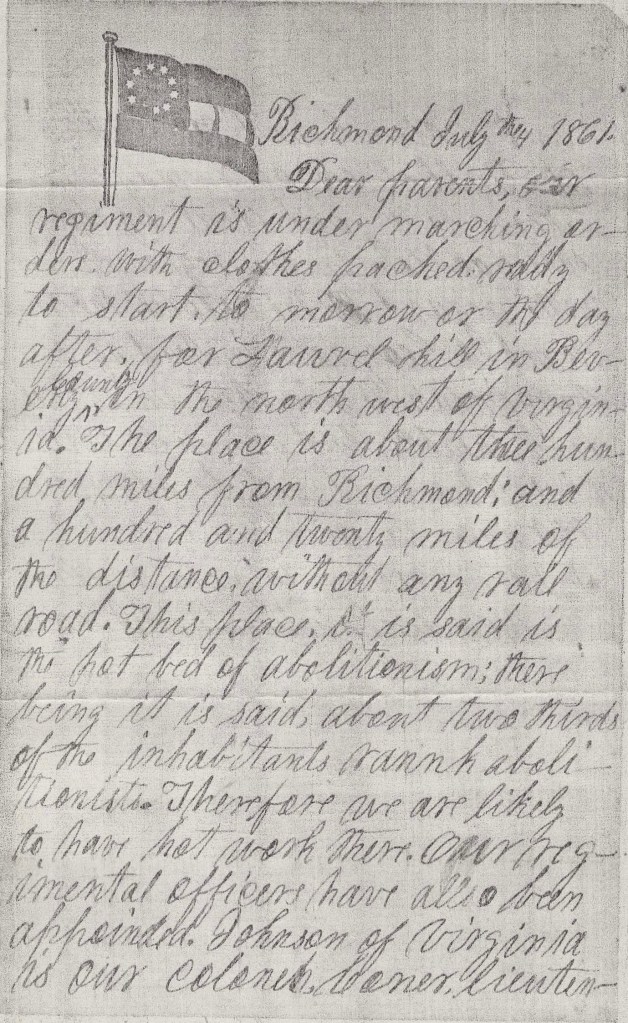 Richmond July the 4 1861.
Dear parents, our
regiment is under marching or-
ders with clothes packed ready
to start. to morrow or the day
after. for Laurel hill in Bev-
erly County in the north west of virgin-
ia. The place is about three hun-
dred miles from Richmond; and
a hundred and twenty miles of
the distance, without any rail
road. This place, it is said is
the hot bed of abolitionism; there
being it is said, about two thirds
of the inhabitants rannk aboli-
tionists. Therefore we are likely
to have hot work there. Our reg-
imental officers have allso been
appointed. Johnson of virginia
is our colonel, lieuten-